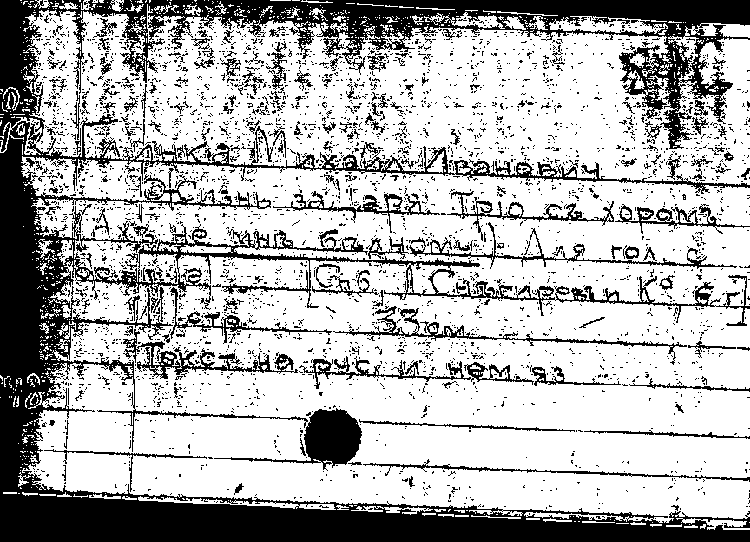 Глинка Михаил Иванович
Жизнь за царя. Трio съ хоромъ
(Ахъ, не мнѣ бѣдному"). Для гол. с
[Спб., Снѣгиревъ и Кº б. г.]
стр. 33 см
Текст на рус. и нем. яз